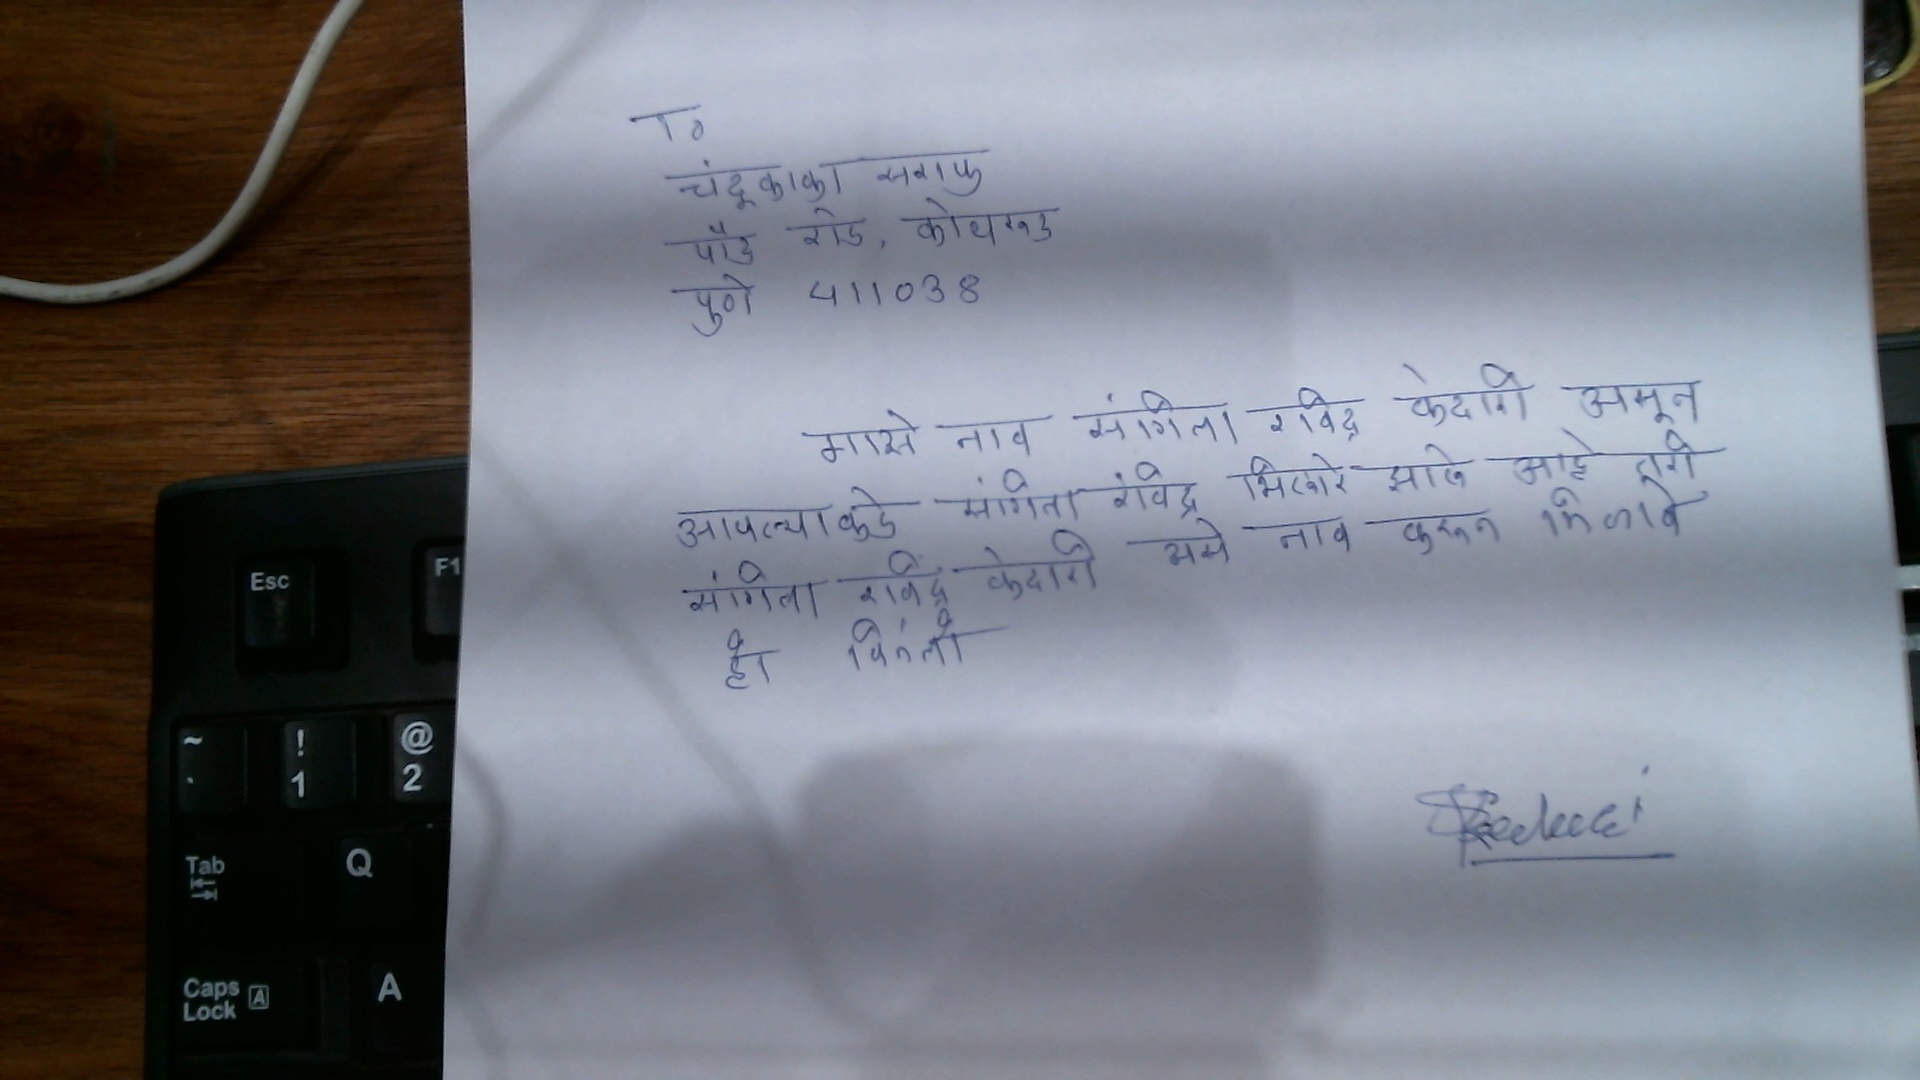 To
चंदूकाका सराफ
पौड रोड, कोथरूड
पुणे 411038
माझे नाव संगिता रविंद्र केदारी असून
आपल्याकडे संगिता रविंद्र झाले आहे तरी
संगिता रविंद्र केदारी असे नाव करून मिळावे
ही विनंती
Esc
F1
~
`
!
1
@
2
Tab
Q
Caps
Lock
A
A